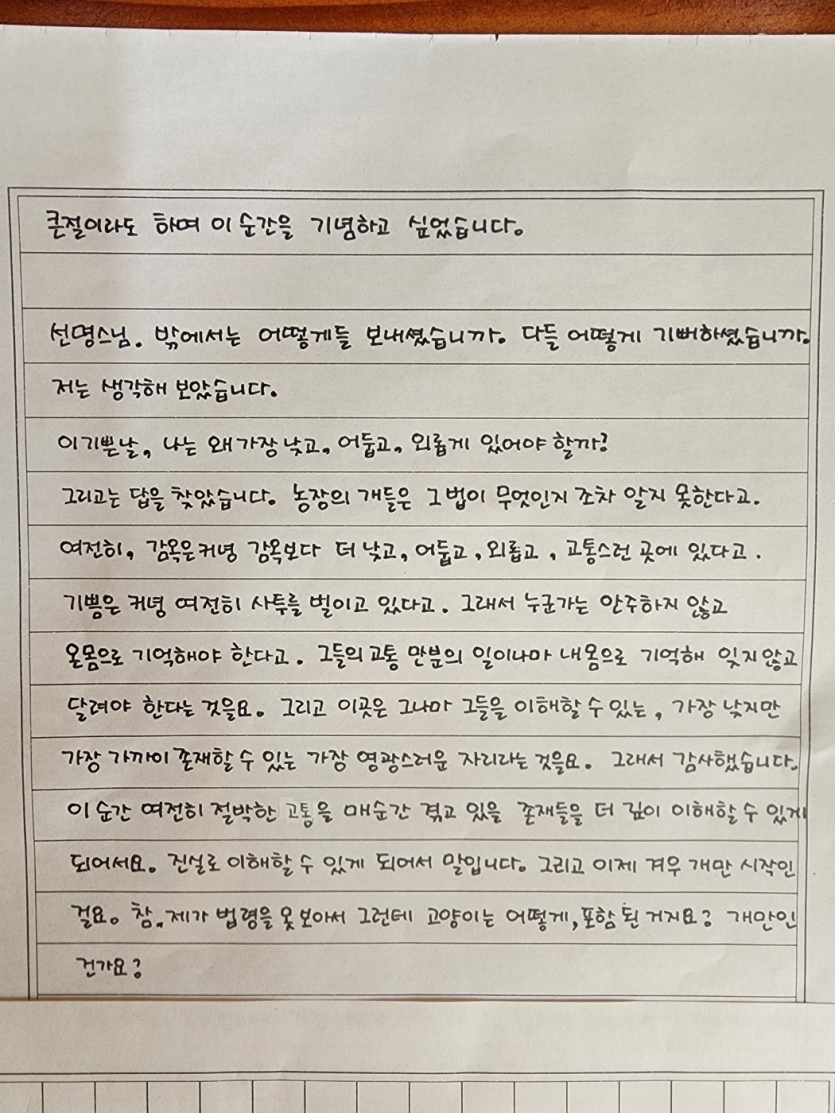 큰절이라도 하며 이 순간을 기념하고 싶었습니다.
선명스님. 밖에서는 어떻게들 보내셨습니까. 다들 어떻게 기뻐하셨습니까.
저는 생각해 보았습니다.
이 기쁜날, 나는 왜 가장 낮고, 어둡고, 외롭게 있어야 할까?
그리고는 답을 찾았습니다. 농장의 개들은 그 법이 무엇인지 조차 알지 못한다고.
여전히, 감옥은커녕 감옥보다 더 낮고, 어둡고, 외롭고, 고통스런 곳에 있다고.
기쁨은 커녕 여전히 사투를 벌이고 있다고. 그래서 누군가는 안주하지 않고
온몸으로 기억해야 한다고. 그들의 고통 만분의 일이나마 내 몸으로 기억해 잊지 않고
달려야 한다는 것을요. 그리고 이곳은 그나마 그들을 이해할 수 있는, 가장 낮지만
가장 가까이 존재할 수 있는 가장 영광스러운 자리라는 것을요. 그래서 감사했습니다.
이 순간 여전히 절박한 고통을 매순간 겪고 있을 존재들을 더 깊이 이해할 수 있게
되어서요. 진실로 이해할 수 있게 되어서 말입니다. 그리고 이제 겨우 개만 시작인
걸요. 참, 제가 법령을 못 보아서 그런데 고양이는 어떻게, 포함 된 거지요? 개만인
건가요?